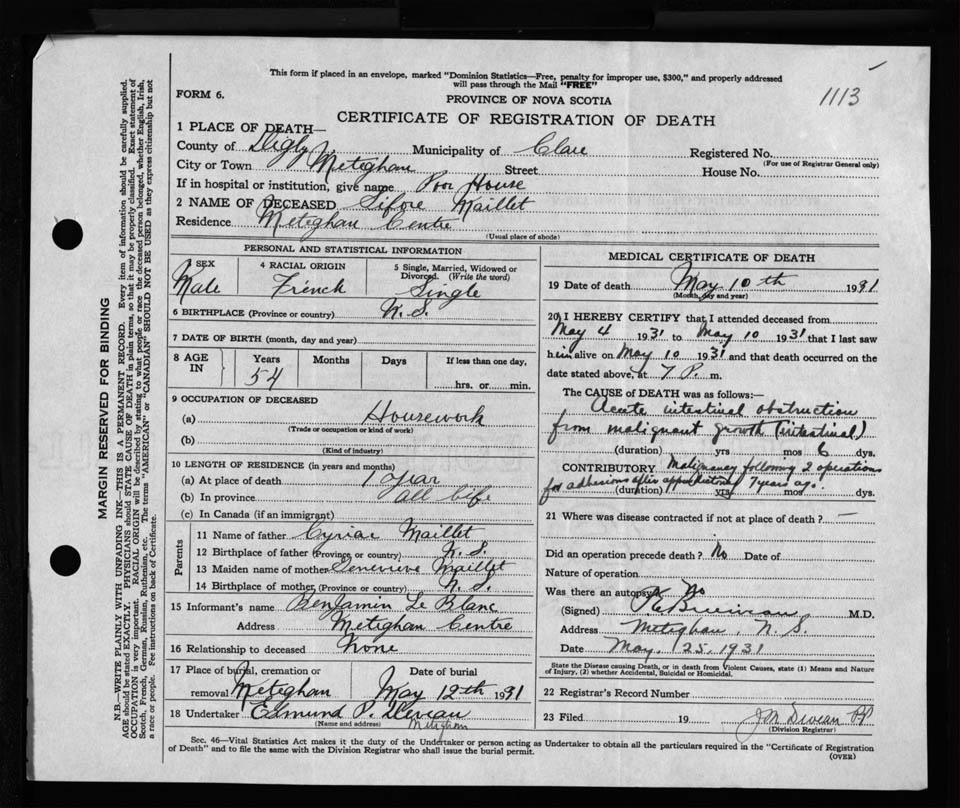 This form if placed in an envelope, marked "Dominion Statistics—Free, penalty for improper use, $300," and properly addressed
will pass through the Mail "FREE"
1113
FORM 6.
PROVINCE OF NOVA SCOTIA
CERTIFICATE OF REGISTRATION OF DEATH
1 PLACE OF DEATH—
County of Digby Municipality of Clare Registered No.
(For use of Registrar General only)
City or Town Meteghan Street House No.
If in hospital or institution, give name Poor House
2 NAME OF DECEASED Sifore Maillet
Residence Meteghan Centre
(Usual place of abode)
PERSONAL AND STATISTICAL INFORMATION
SEX Male
4 RACIAL ORIGIN French
5 Single, Married, Widowed or Divorced. (Write the word) Single
6 BIRTHPLACE (Province or country) N.S.
7 DATE OF BIRTH (month, day and year)
8 AGE IN Years 54 Months Days If less than one day, hrs. or min.
9 OCCUPATION OF DECEASED
(a) Housework
(Trade or occupation or kind of work)
(b)
(Kind of industry)
10 LENGTH OF RESIDENCE (in years and months)
(a) At place of death 1 year
(b) In province all life
(c) In Canada (if an immigrant)
Parents
11 Name of father Cyriac Maillet
12 Birthplace of father (Province or country) N.S.
13 Maiden name of mother Genevieve Maillet
14 Birthplace of mother (Province or country) N.S.
15 Informant's name Benjamin Le Blanc
Address Metighan Centre
16 Relationship to deceased None
17 Place of burial, cremation or removal Meteghan
Date of burial May 12th 1931
18 Undertaker Edmund P. Deveau
(Name and address) Metighan
MEDICAL CERTIFICATE OF DEATH
19 Date of death May 10th 1931
(Month, day and year)
20 I HEREBY CERTIFY that I attended deceased from
May 4 1931 to May 10 1931 that I last saw
him alive on May 10 1931 and that death occurred on the
date stated above, at 7 P. m.
The CAUSE of DEATH was as follows:—
Acute intestinal obstruction
from malignant growth (intestinal)
(duration) yrs mos 6 dys.
CONTRIBUTORY Malignancy following 2 operations
for adhesions after 7 years ago.
(duration) yrs mos dys.
21 Where was disease contracted if not at place of death? —
Did an operation precede death? No Date of
Nature of operation
Was there an autopsy? No
(Signed) M.D.
Address Meteghan, N.S.
Date May. 25. 1931
State the Disease causing Death, or in death from Violent Causes, state (1) Means and Nature
of Injury, (2) whether Accidental, Suicidal or Homicidal.
22 Registrar's Record Number
23 Filed 19
(Division Registrar)
Sec. 46—Vital Statistics Act makes it the duty of the Undertaker or person acting as Undertaker to obtain all the particulars required in the "Certificate of Registration
of Death" and to file the same with the Division Registrar who shall issue the burial permit.
(OVER)
MARGIN RESERVED FOR BINDING
N.B.—WRITE PLAINLY WITH UNFADING INK—THIS IS A PERMANENT RECORD. Every item of information should be carefully supplied.
AGE should be stated EXACTLY. PHYSICIANS should STATE CAUSE OF DEATH in plain terms, so that it may be properly classified. Exact statement of
OCCUPATION is very important. RACIAL ORIGIN will be described by stating to what people or race the deceased person belonged, whether English, Irish,
Scotch, French, German, Russian, Ruthenian, etc. The terms "AMERICAN" or "CANADIAN" SHOULD NOT BE USED as they express citizenship but not
a race or people. Fee instructions on back of Certificate.